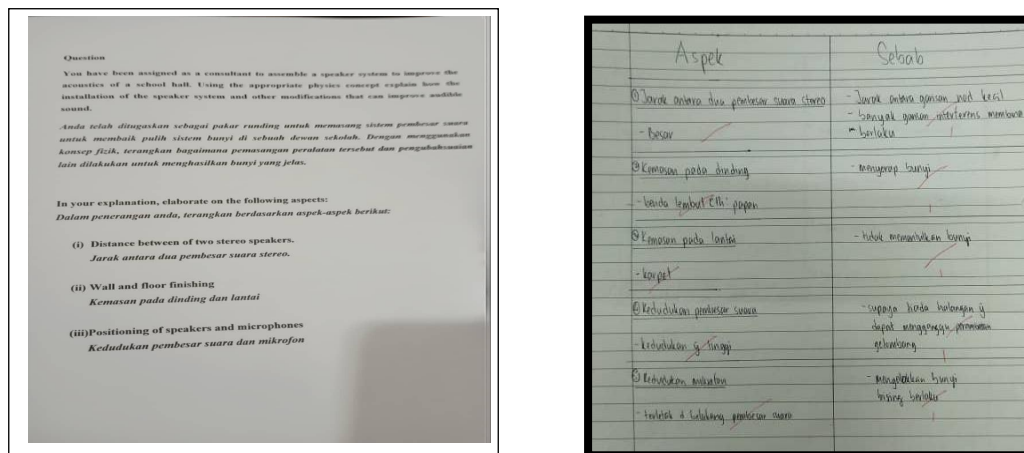 Question
You have been assigned as a consultant to assemble a speaker system to improve the
acoustics of a school hall. Using the appropriate physics concept explain how the
installation of the speaker system and other modifications that can improve audible
sound.
Anda telah ditugaskan sebagai pakar runding untuk memasang sistem pembesar suara
untuk membaik pulih sistem bunyi di sebuah dewan sekolah. Dengan menggunakan
konsep fizik, terangkan bagaimana pemasangan peralatan tersebut dan pengubahsuaian
lain dilakukan untuk menghasilkan bunyi yang jelas.
In your explanation, elaborate on the following aspects:
Dalam penerangan anda, terangkan berdasarkan aspek-aspek berikut:
(i) Distance between of two stereo speakers.
Jarak antara dua pembesar suara stereo.
(ii) Wall and floor finishing
Kemasan pada dinding dan lantai
(iii)Positioning of speakers and microphones
Kedudukan pembesar suara dan mikrofon
Aspek
Sebab
① Jarak antara dua pembesar suara stereo
- Besar
- Jarak antara garisan nod kecil
- banyak garisan interferens membina
- berlaku
② Kemasan pada dinding
- benda lembut Cth: papan
- menyerap bunyi
③ Kemasan pada lantai
- karpet
- tidak memantulkan bunyi
④ Kedudukan pembesar suara
- kedudukan yg tinggi
- supaya tiada halangan yg
dapat mengganggu perambatan
gelombang
⑤ Kedudukan mikrofon
- terletak d belakang pembesar suara
- mengelakkan bunyi
bising berlaku